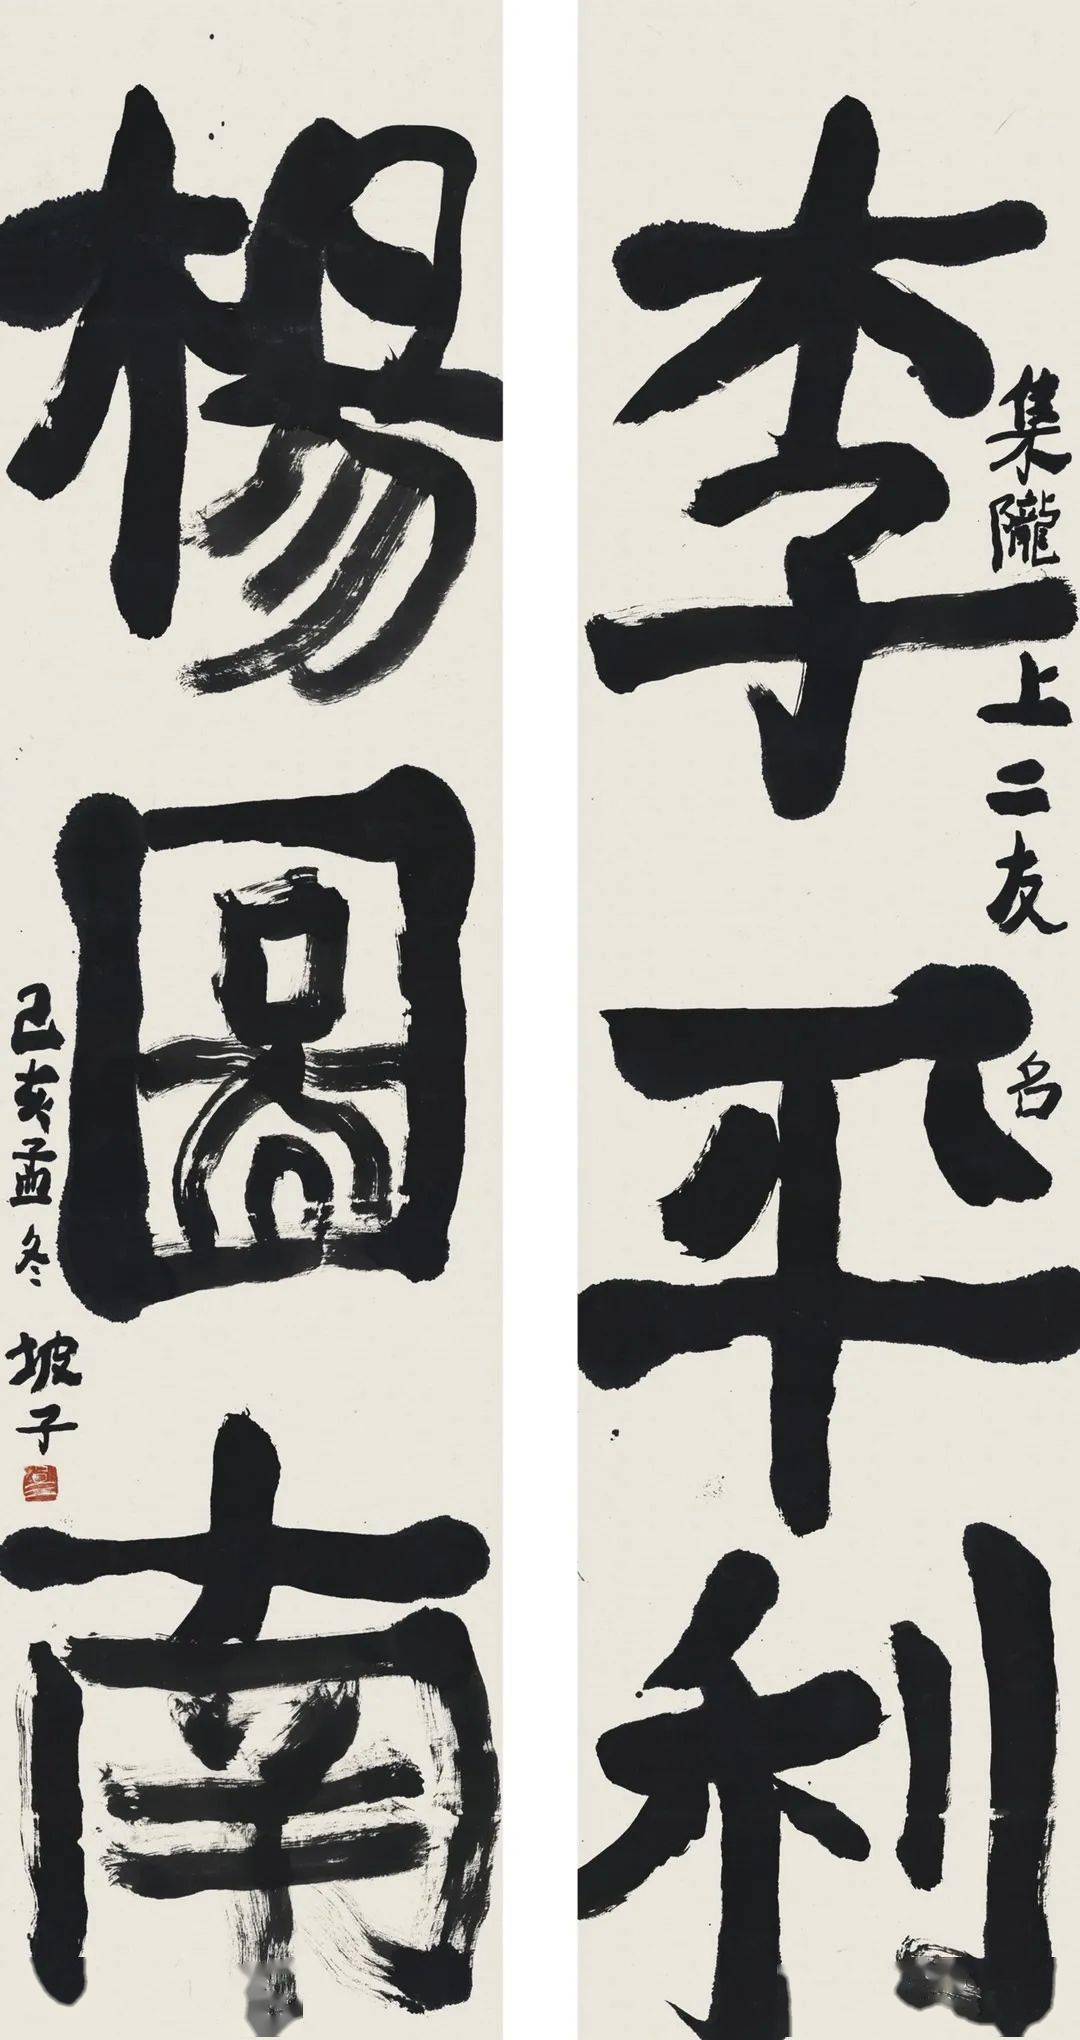 李平利
集隴上二友名
楊圖南
己亥孟冬
坡子